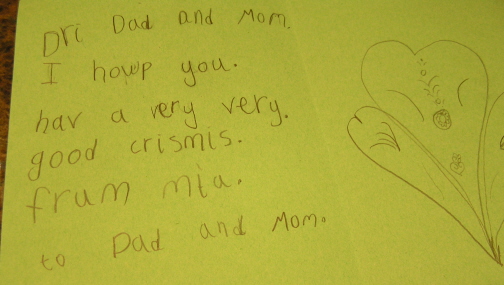 Dri Dad and Mom.
I howp you.
hav a very very.
good crismis.
frum mia.
to Dad and Mom.